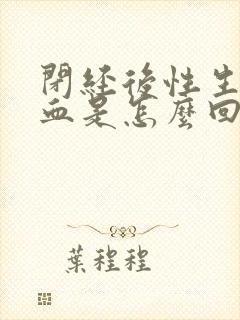 閉經後性生
血是怎麼回
葉程程